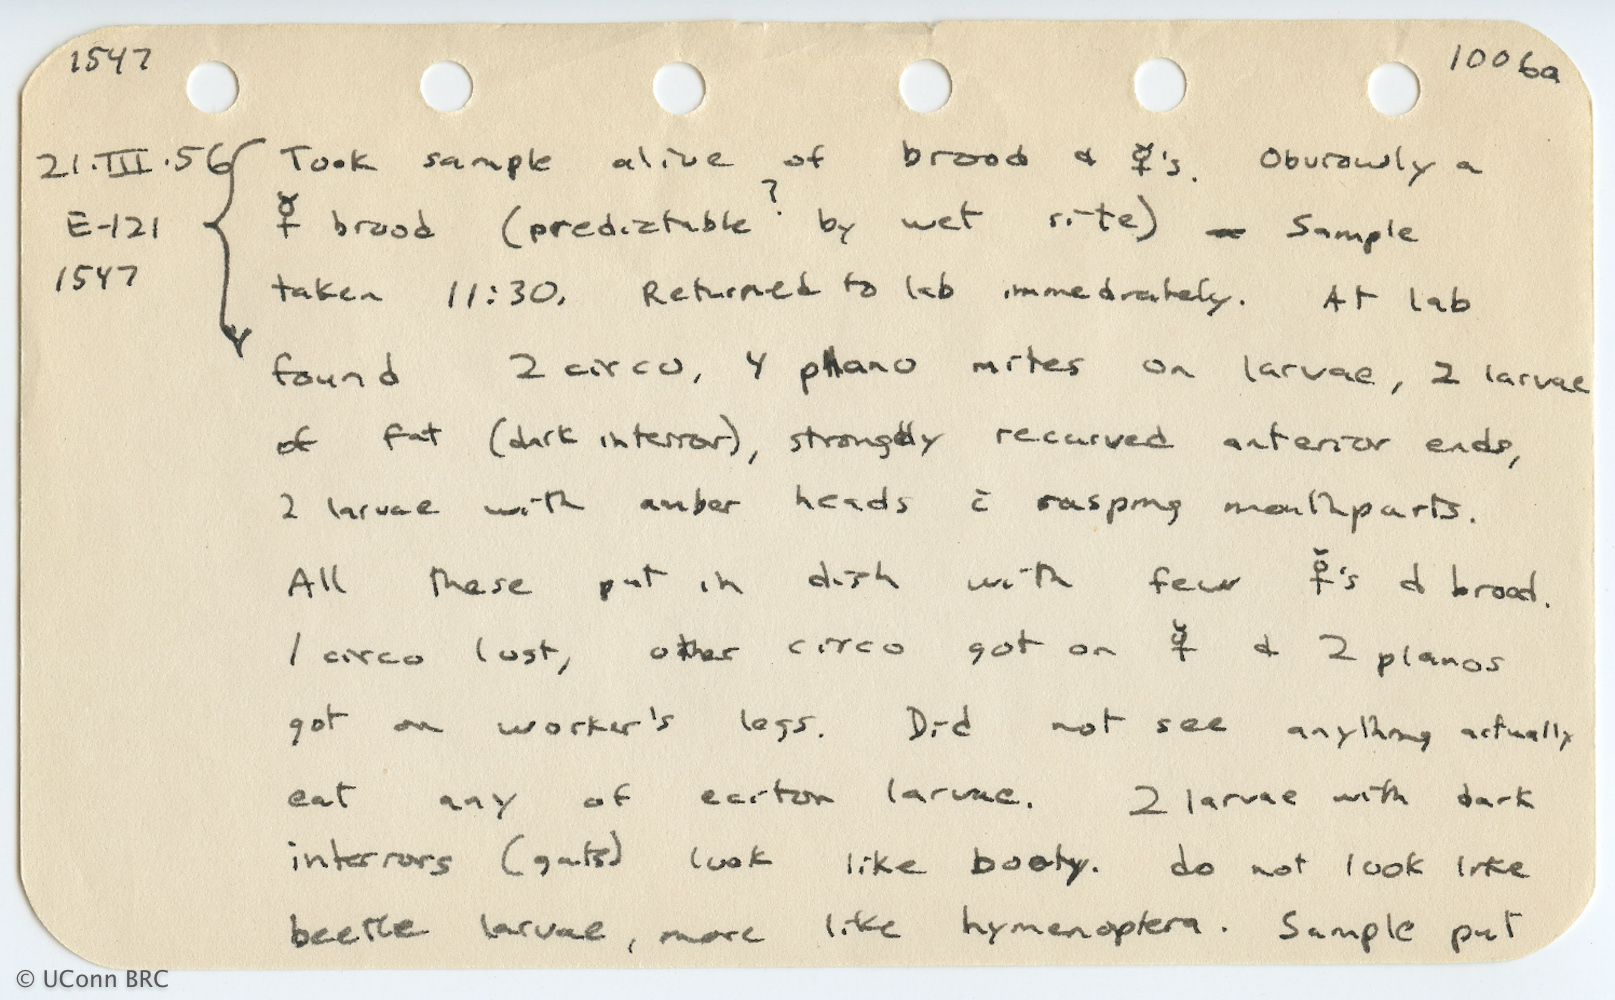 1547
1006a
21.III.56 Took sample alive of brood & ☿'s. Obviously a
E-121 ☿ brood (predictable? by wet site) — Sample
1547 taken 11:30. Returned to lab immediately. At lab
found 2 circo, 4 plano mites on larvae, 2 larvae
of fat (dark interior), strongly recurved anterior ends,
2 larvae with amber heads c̄ rasping mouthparts.
All these put in dish with few ☿'s & brood.
1 circo lost, other circo got on ☿ & 2 planos
got on worker's legs. Did not see anything actually
eat any of eciton larvae. 2 larvae with dark
interiors (guts) look like booty. do not look like
beetle larvae, more like hymenoptera. Sample put
© UConn BRC